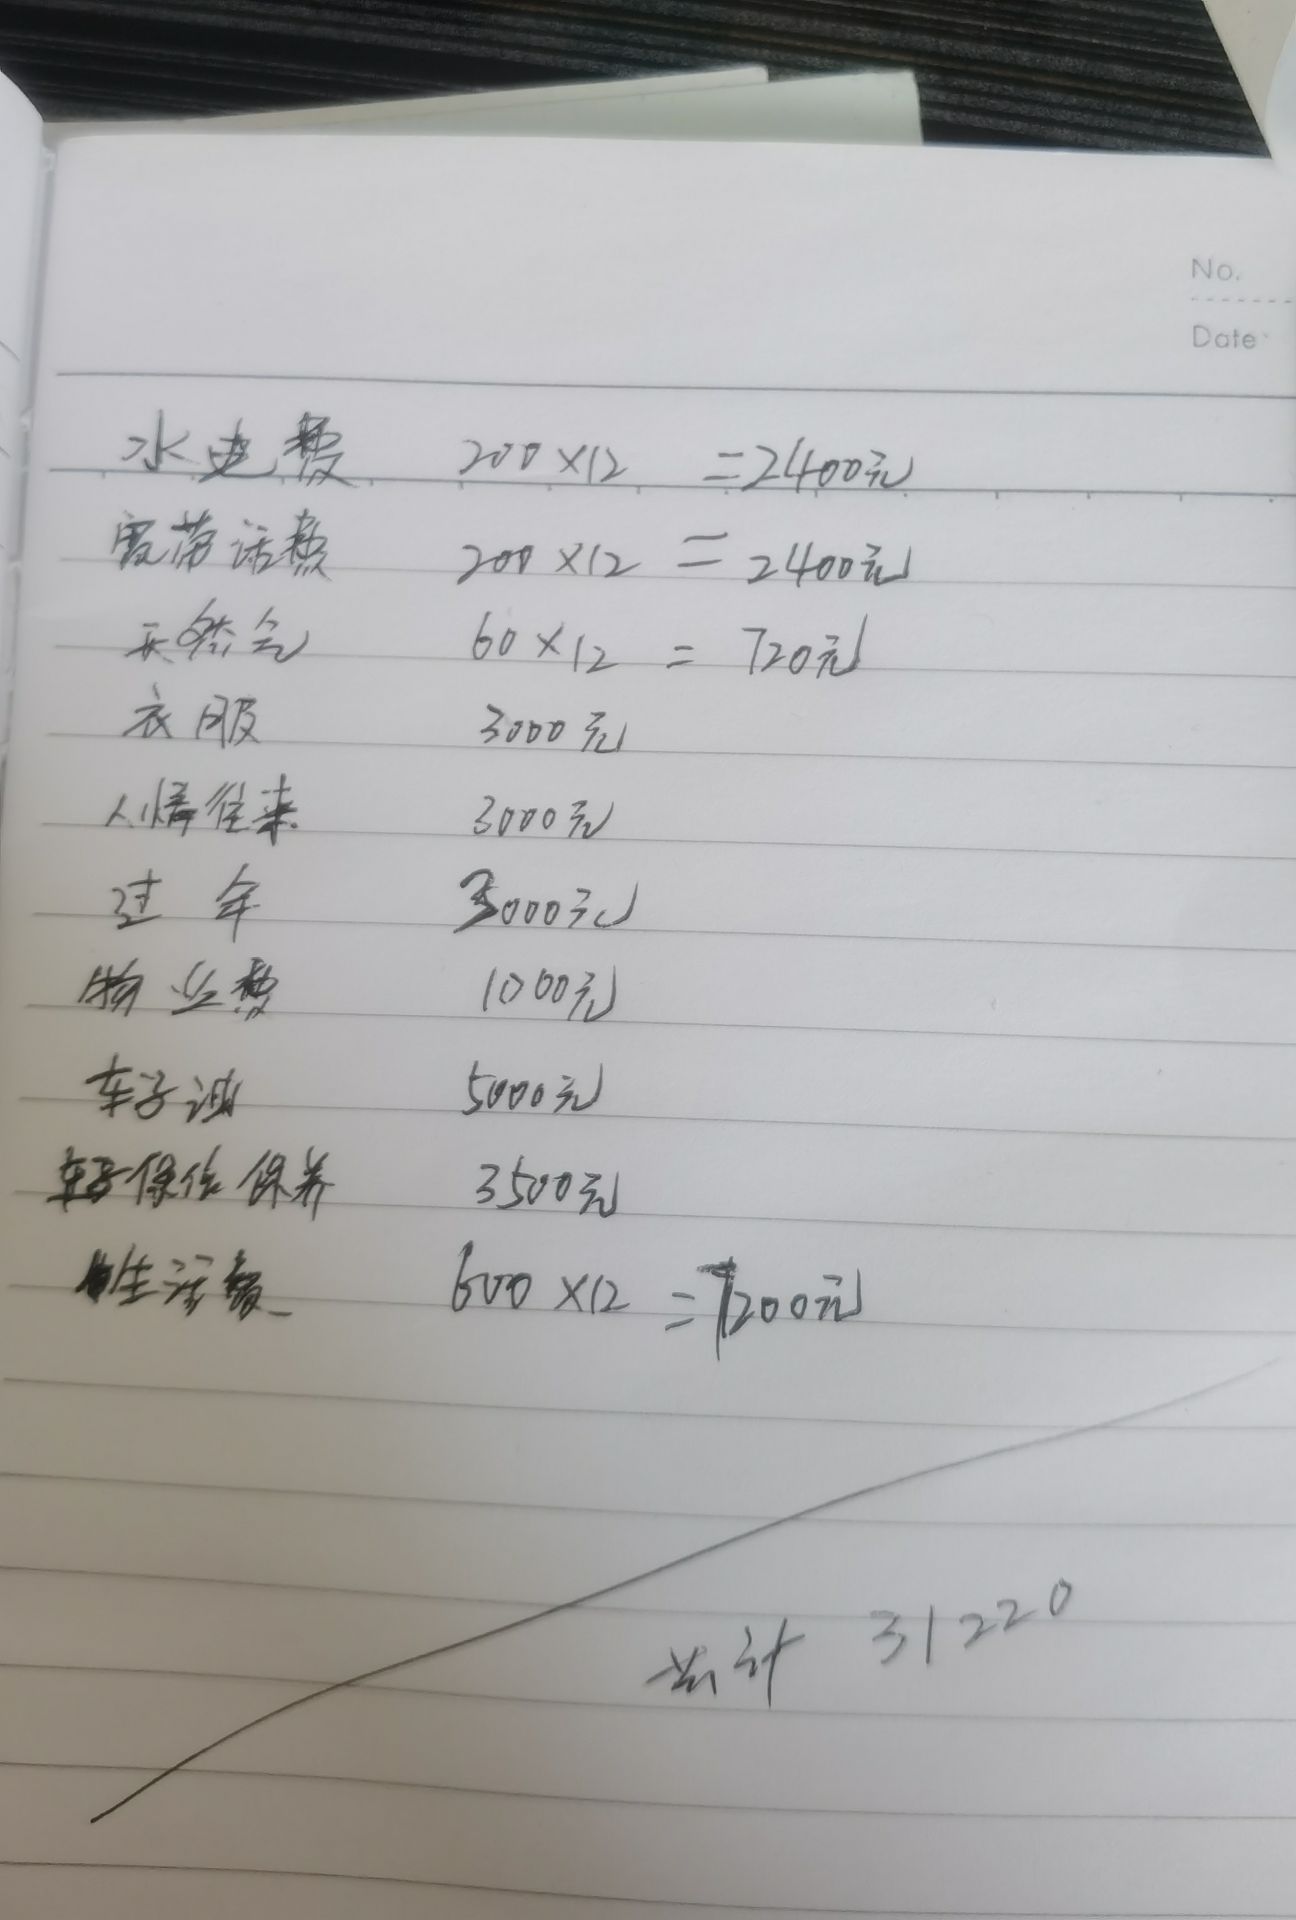 No.
Date
水电费 200×12 =2400元
宽带话费 200×12 = 2400元
天然气 60×12 = 720元
衣服 3000元
人情往来 3000元
过年 3000元
物业费 1000元
车子油 5000元
车子保险保养 3500元
生活费 600×12 =7200元
共计 31220